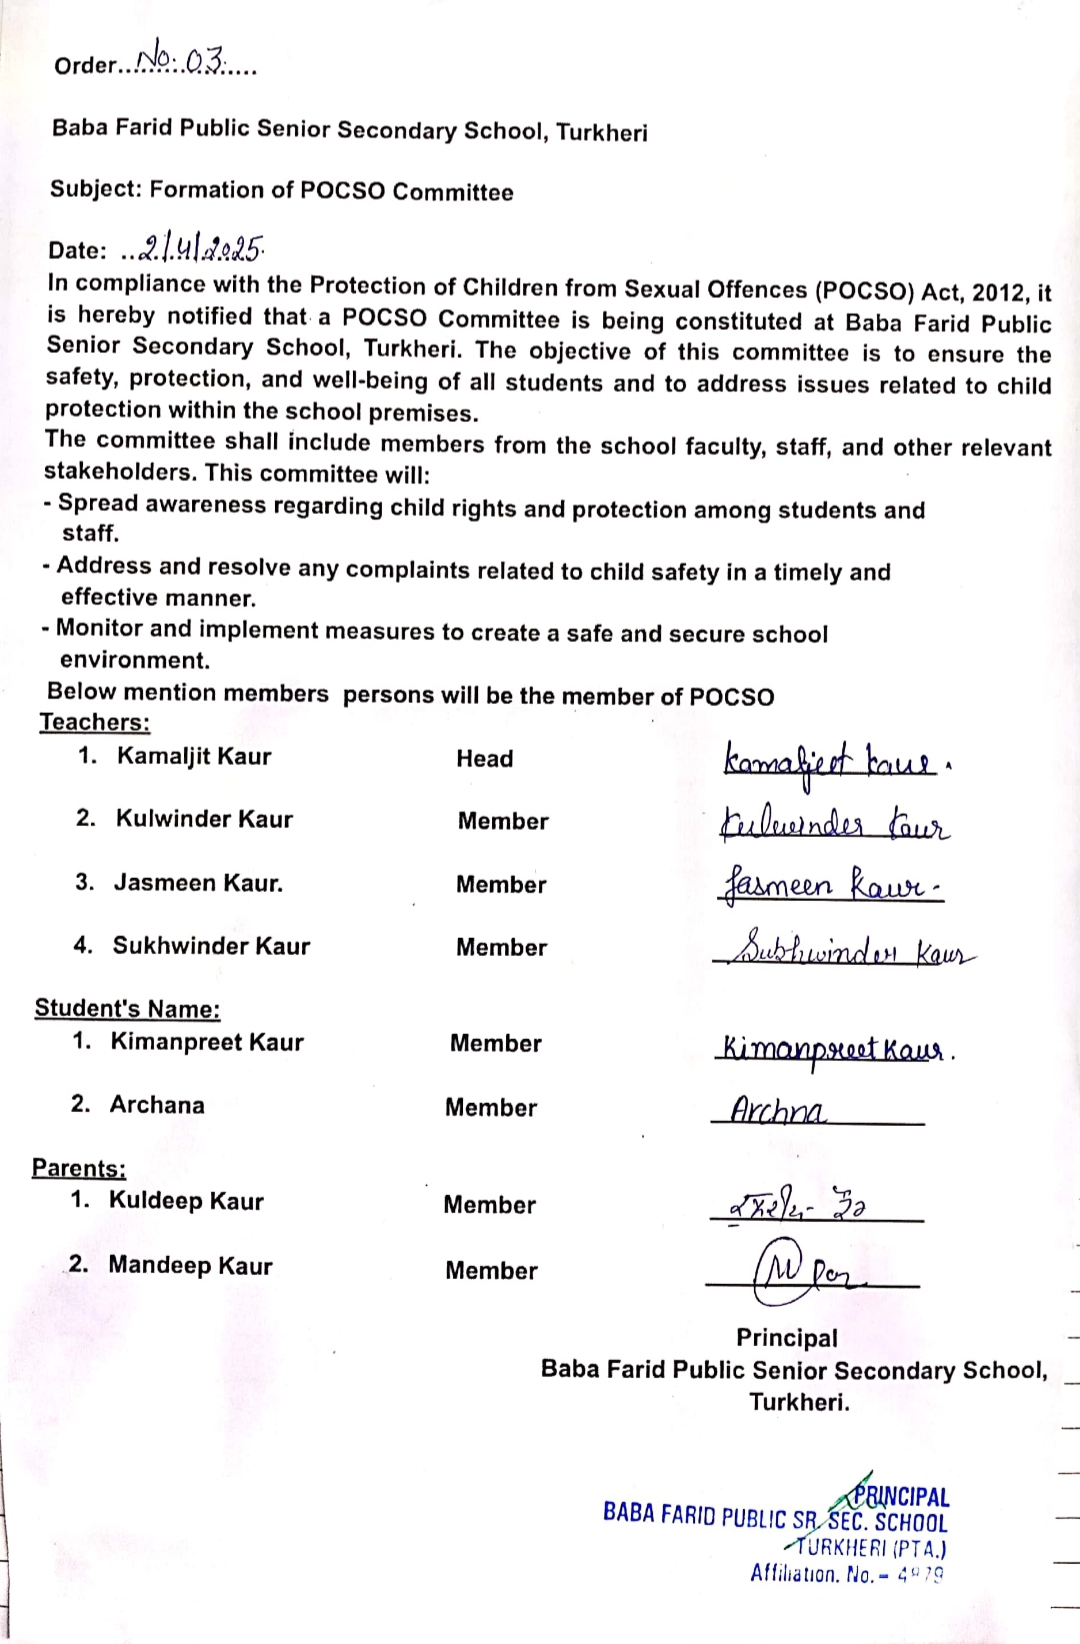 Order..No: 03.....
Baba Farid Public Senior Secondary School, Turkheri
Subject: Formation of POCSO Committee
Date: ..2/4/2025.
In compliance with the Protection of Children from Sexual Offences (POCSO) Act, 2012, it
is hereby notified that a POCSO Committee is being constituted at Baba Farid Public
Senior Secondary School, Turkheri. The objective of this committee is to ensure the
safety, protection, and well-being of all students and to address issues related to child
protection within the school premises.
The committee shall include members from the school faculty, staff, and other relevant
stakeholders. This committee will:
- Spread awareness regarding child rights and protection among students and
staff.
- Address and resolve any complaints related to child safety in a timely and
effective manner.
- Monitor and implement measures to create a safe and secure school
environment.
Below mention members persons will be the member of POCSO
Teachers:
1. Kamaljit Kaur Head Kamaljeet Kaur.
2. Kulwinder Kaur Member Kulwinder Kaur
3. Jasmeen Kaur. Member Jasmeen Kaur-
4. Sukhwinder Kaur Member Sukhwinder Kaur
Student's Name:
1. Kimanpreet Kaur Member Kimanpreet Kaur.
2. Archana Member Archna
Parents:
1. Kuldeep Kaur Member
2. Mandeep Kaur Member
Principal
Baba Farid Public Senior Secondary School,
Turkheri.
PRINCIPAL
BABA FARID PUBLIC SR. SEC. SCHOOL
TURKHERI (PTA.)
Affiliation. No. -